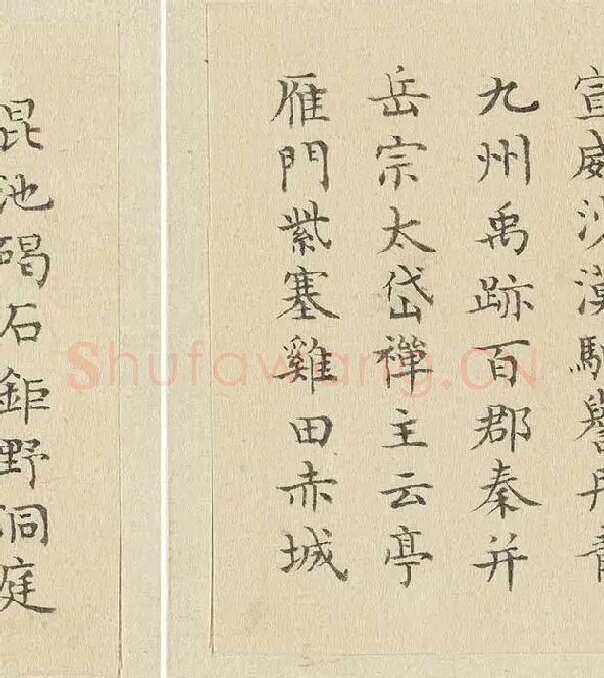 宣威沙漠馳譽丹青
九州禹跡百郡秦并
岳宗太岱禪主云亭
雁門紫塞雞田赤城
昆池碣石鉅野洞庭
Shufawang.CN